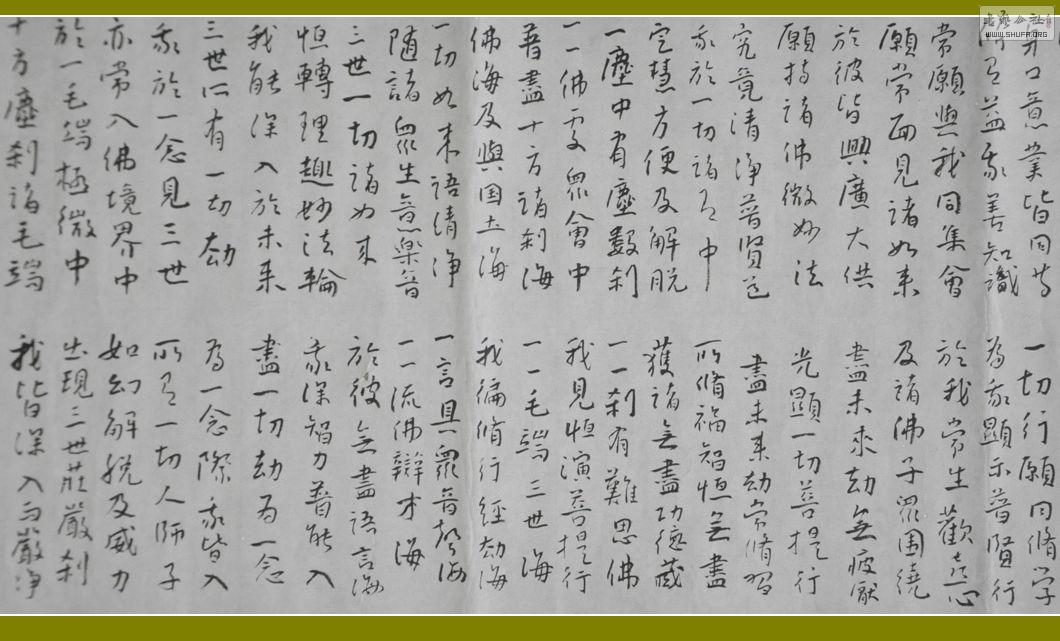 口意業皆同等 一切行願同脩學
益我善知識 為我顯示普賢行
常願與我同集會 於我常生歡喜心
願常面見諸如来 及諸佛子眾圍繞
於彼皆興廣大供 盡未來劫無疲厭
願持諸佛微妙法 光顯一切菩提行
究竟清淨普賢道 盡未来劫常脩習
我於一切諸有中 所脩福智恒無盡
定慧方便及解脫 獲諸無盡功德藏
一塵中有塵數剎 一一剎有難思佛
一一佛處眾會中 我見恒演菩提行
普盡十方諸剎海 一一毛端三世海
佛海及與国土海 我徧脩行經劫海
一切如来語清淨 一言具眾音聲海
隨諸眾生意樂音 一一流佛辯才海
三世一切諸如来 於彼無盡語言海
恒轉理趣妙法輪 我深智力普能入
我能深入於未来 盡一切劫為一念
三世所有一切劫 為一念際我皆入
我於一念見三世 所有一切人師子
亦常入佛境界中 如幻解脫及威力
於一毛端極微中 出現三世莊嚴剎
十方塵剎諸毛端 我皆深入而嚴淨
WWW.SHUFA.ORG